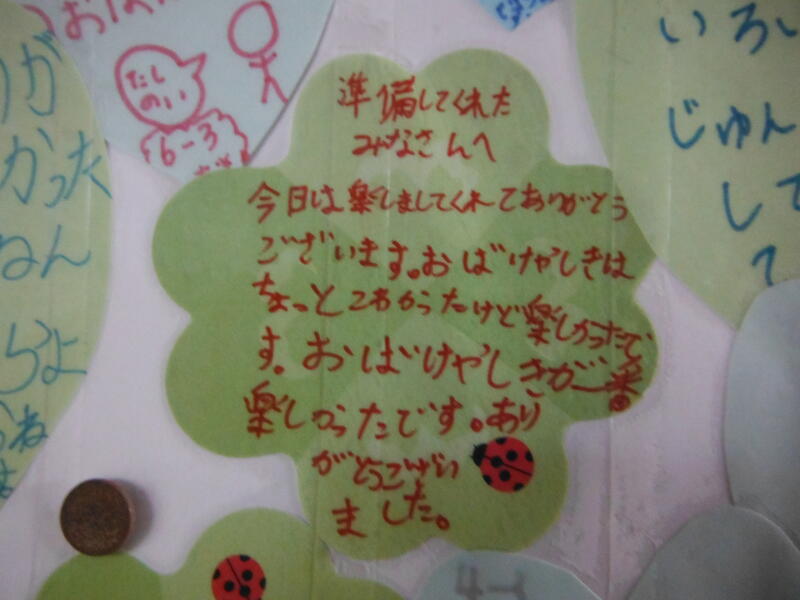 たし
のしい
6-3
準備してくれた
みなさんへ
今日は楽しましてくれてありがとう
ございます。おばけやしきは
ちょっとこわかったけど楽しかったで
す。おばけやしきが一番
楽しかったです。あり
がとうござい
ました。
りが
かった
ねん
らよ
いろい
じゅん
して
て
4-1